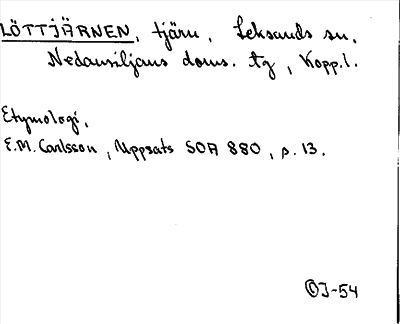 LÖTTJÄRNEN, tjärn, Leksands sn.
Nedansiljans doms. tg, Kopp.l.
Etymologi.
E.M. Carlsson, Uppsats SOA 880, s. 13.
OJ-54